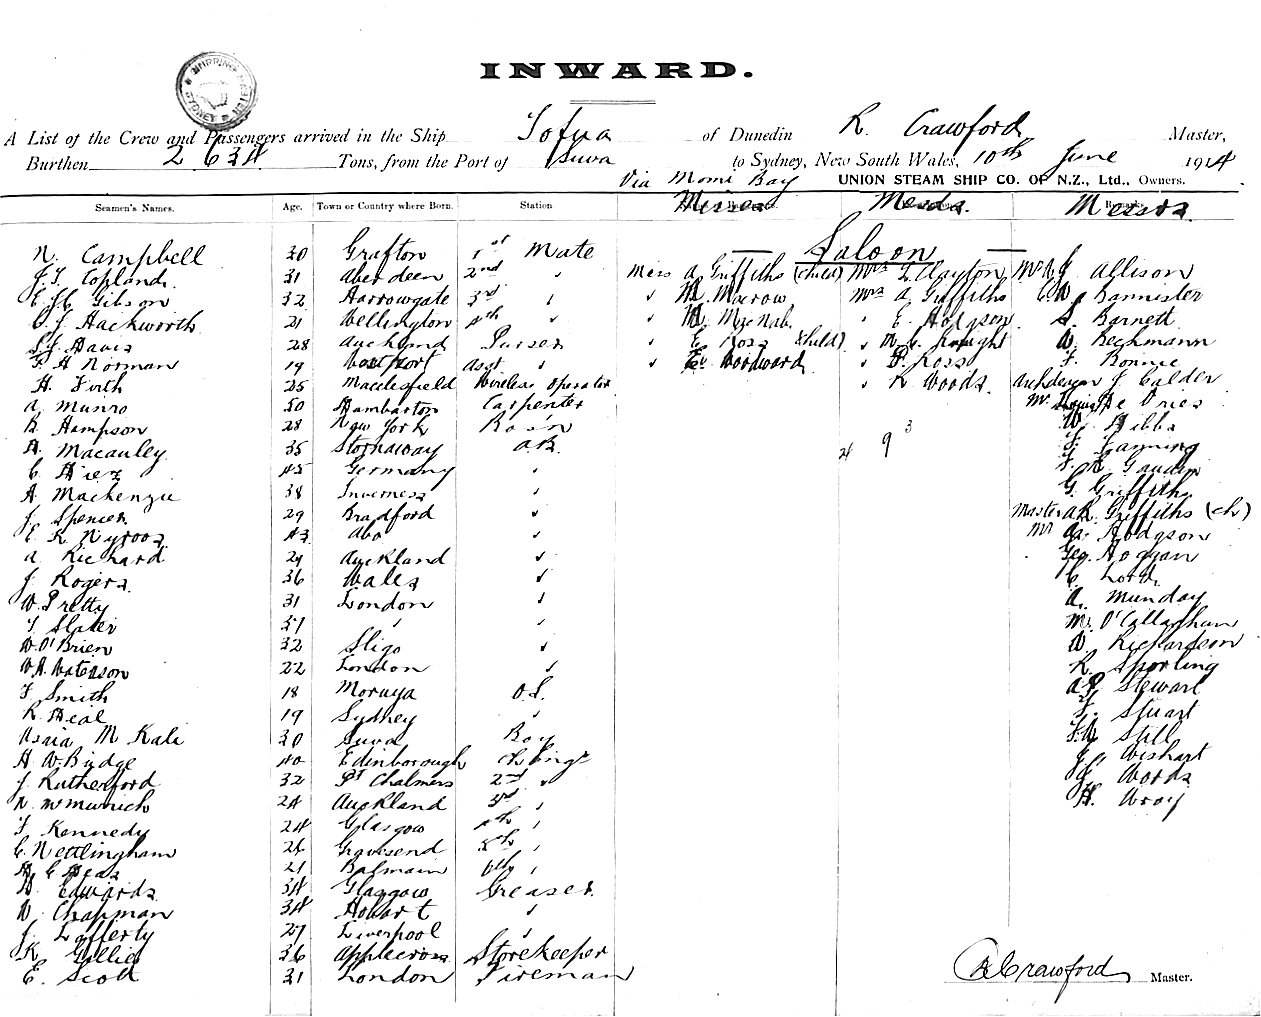 INWARD.
A List of the Crew and Passengers arrived in the Ship Tofua of Dunedin R. Crawford Master,
Burthen 2634 Tons, from the Port of Suva to Sydney, New South Wales, 10th June 1914
Via Momi Bay UNION STEAM SHIP CO. OF N.Z., Ltd., Owners.
Seamen's Names. Age. Town or Country where Born. Station Misses Mesds. Messrs.
Saloon
N. Campbell 30 Grafton 1st Mate
J. T. Copland 31 Aberdeen 2nd " Miss A. Griffiths (child) Mrs L. Clayton Mr A J Allison
E. J. C. Gibson 32 Harrowgate 3rd " " M. Macrow Mrs A Griffiths C W Bannister
C. J. Hackworth 21 Wellington 4th " " M. MacNab " E. Hodgson S. Barnett
S. J. Davis 28 Auckland Purser " E Ross (child) " Knight W. Beckmann
F. H Norman 19 Westport Asst " " E. Woodward " P. Ross F. Bonnie
H. Firth 25 Macclesfield Wireless Operator " R Woods Archdeacon J Calder
A. Munro 50 Dumbarton Carpenter Mr De Vries
B. Hampson 28 New York Bos'n W. Hibbs
A. Macauley 35 Stornaway A.B. 24 9 3 J. Fanning
C. Hiez 45 Germany " F. R. Gaudin
A. Mackenzie 38 Inverness " G. Griffiths
J. Spencer 29 Bradford " Master A R. Griffiths (ch)
E. R Nyroos 43 Abo " Mr A. Hodgson
A. Richard 29 Auckland " Geo. Hoggan
J. Rogers 36 Wales " C. Lord
W. Pretty 31 London " A. Munday
T. Slater 37 " " M. O'Callaghan
W. O'Brien 32 Sligo " W Richardson
W. A. Waterson 22 London " R. Sporling
F Smith 18 Moruya O.S. A P. Stewart
R. Heal 19 Sydney " F. Stuart
Asaia M Kali 30 Suva Boy F. W Still
H W. Budge 40 Edinborough Ch Engr J C Wishart
J. Rutherford 32 Pt Chalmers 2nd " J C Woods
N. McMunich 24 Auckland 3rd " H. Wray
F. Kennedy 24 Glasgow 4th "
C. Nettlingham 26 Gravesend 5th "
C 21 Balmain 6th "
D. Edwards 34 Glasgow Greaser
W. Chapman 34 Hobart "
J. Lafferty 27 Liverpool "
K Gillie 36 Applecross Storekeeper
E. Scott 31 London Fireman
R Crawford Master.